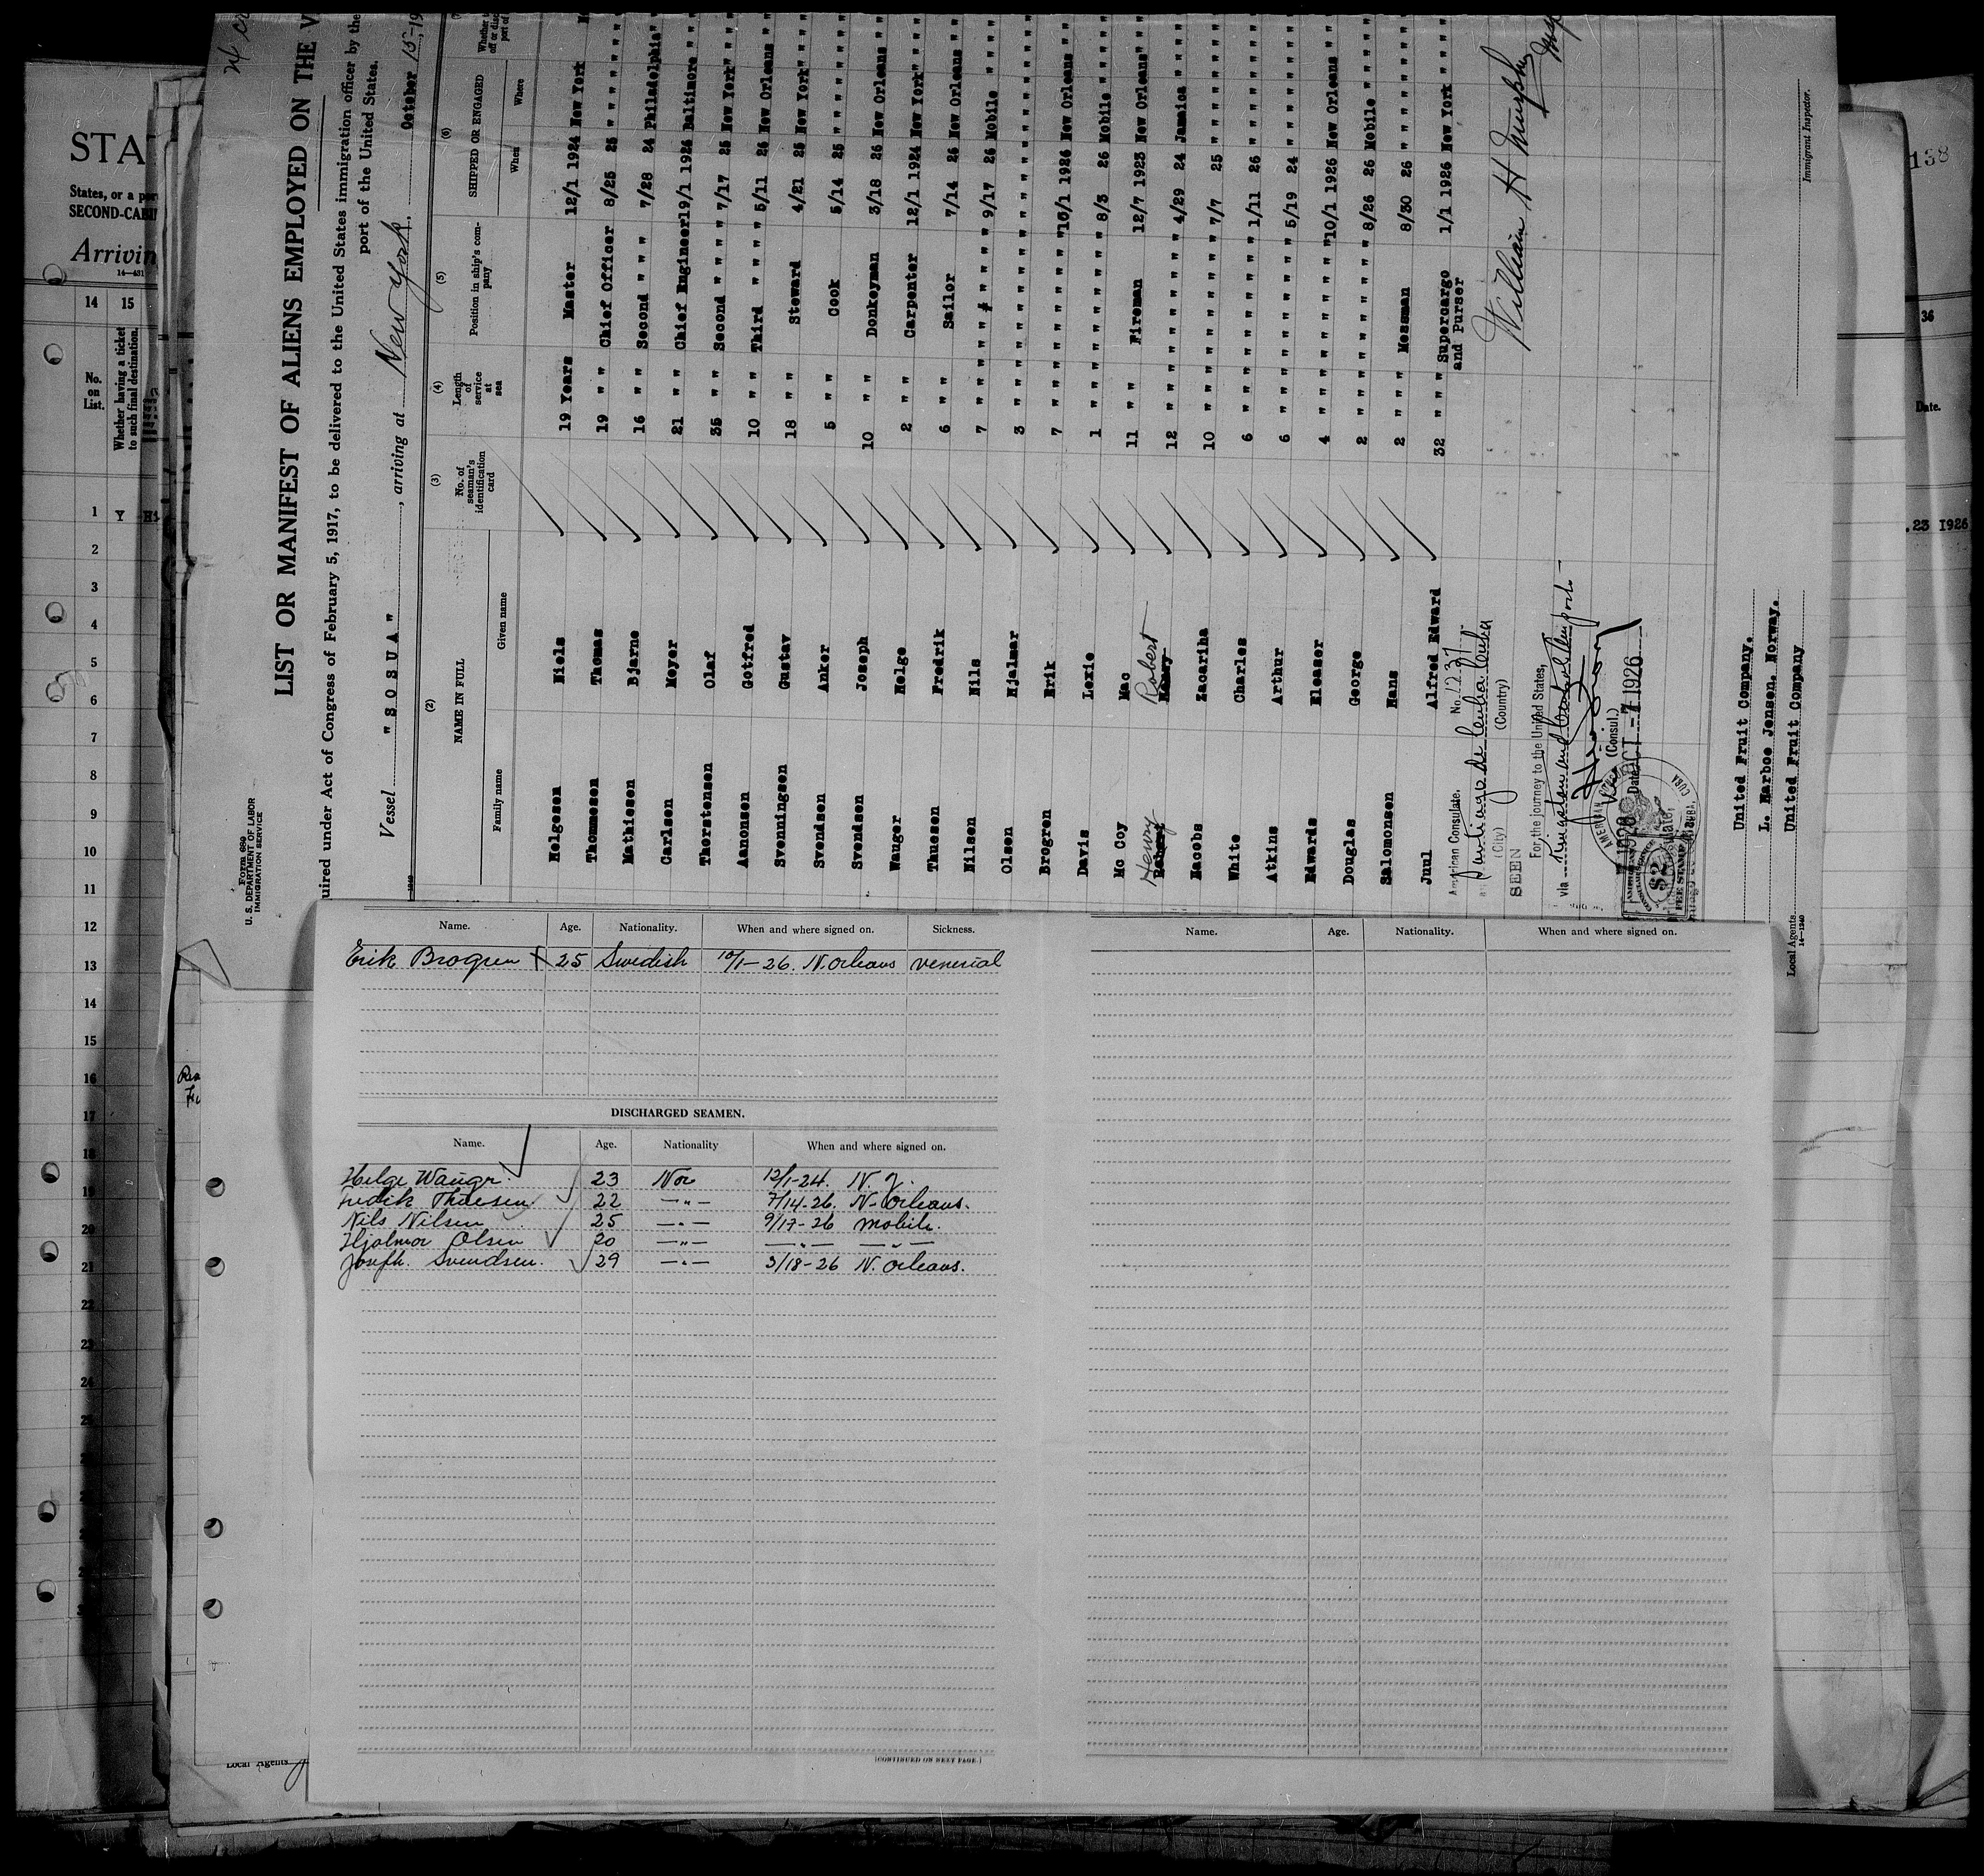 STA
States, or a
SECOND-CABI
Arrivin
14—431
14 15
No. on List.
Whether having a ticket to such final destination.
1 Y
2
3
4
5
6
7
8
9
10
11
12
13
14
15
16
17
18
19
20
21
22
23
24
138
36
Date.
23 1926
Form 680
U. S. DEPARTMENT OF LABOR
IMMIGRATION SERVICE
LIST OR MANIFEST OF ALIENS EMPLOYED ON THE V
uired under Act of Congress of February 5, 1917, to be delivered to the United States immigration officer by the
port of the United States.
Vessel "SOSUA", arriving at New York. October 15-19
(2) (3) (4) (5) (6)
NAME IN FULL
Family name Given name
No. of seaman's identification card
Length of service at sea
Position in ship's company
SHIPPED OR ENGAGED
When Where
Helgesen Niels 19 Years Master 12/1 1924 New York
Thommesen Thomas 19 " " Chief Officer 8/25 25 " " " "
Mathiesen Bjarne 16 " " Second " " " 7/28 24 Philadelphia"
Carlsen Meyer 21 " " Chief Engineer 19/1 1926 Baltimore " "
Thorstensen Olaf 35 " " Second " " " 7/17 25 New York" " "
Aanonsen Gotfred 10 " " Third " " " " 5/11 26 New Orleans " "
Svenningsen Gustav 18 " " Steward 4/21 25 New York" " "
Svendsen Anker 5 " " Cook 5/14 25 " " " "
Svendsen Joseph 10 " " Donkeyman 3/18 26 New Orleans " "
Wauger Helge 2 " " Carpenter 12/1 1924 New York" " "
Thuesen Fredrik 6 " " Sailor 7/14 26 New Orleans " "
Nilsen Nils 7 " " " " " " 9/17 26 Mobile " " "
Olsen Hjalmar 3 " " " " " " " " " " " "
Brogren Erik 7 " " " " " " 10/1 1926 New Orleans " "
Davis Lexie 1 " " " " " " 8/3 26 Mobile " " "
Mc Coy Mac 11 " " Fireman 12/7 1923 New Orleans" "
Henry Robert 12 " " " " " " 4/29 24 Jamaica " " "
Macobs Zacariha 10 " " " " " " 7/7 25 " " " "
White Charles 6 " " " " " " 1/11 26 " " " "
Atkins Arthur 6 " " " " " " 5/19 24 " " " "
Edwards Eleaser 4 " " " " " " 10/1 1926 New Orleans " "
Douglas George 2 " " " " " " 8/26 26 Mobile " " "
Salomonsen Hans 2 " " " Messman 8/30 26 " " " "
Juul Alfred Edward 32 " " " Supercargo and Purser 1/1 1926 New York " " "
American Consulate. No. 1237
Santiago de Cuba Cuba
(City) (Country)
SEEN
For the journey to the United States,
via Kingston and
Vice (Consul.)
Date OCT -7 1926
AMERICAN
CUBA
$2
FEE STAMP
William H Murphy
Immigrant Inspector.
United Fruit Company.
L. Harboe Jensen. Norway.
United Fruit Company
Local Agents.
14—1240
Name. Age. Nationality. When and where signed on. Sickness.
Erik Brogren 25 Swedish 10/1-26. N. Orleans venerial
DISCHARGED SEAMEN.
Name. Age. Nationality When and where signed on.
Helge Waugr. 23 Nor 12/1-24. N. Y.
Fredik Thuesen 22 —"— 7/14-26. N-Orleans.
Nils Nilsen 25 —"— 9/17-26 mobile.
Hjalmar Olsen 20 —"— —"— —"—
Joseph. Svendsen. 29 —"— 3/18-26 N. Orleans.
(CONTINUED ON NEXT PAGE.)
Name. Age. Nationality. When and where signed on.
Local Agents